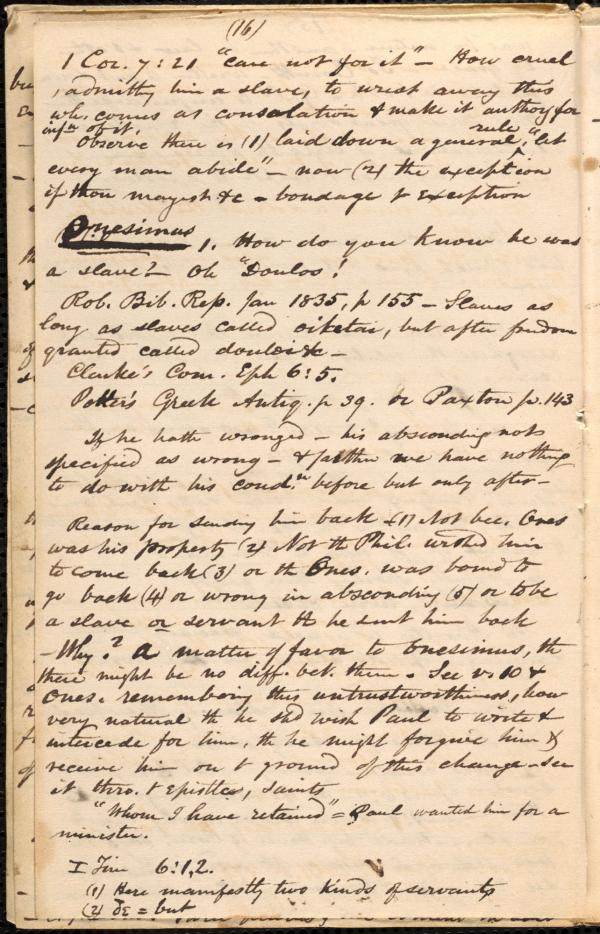 (16)
1 Cor. 7:21 "care not for it" – How cruel
, admittg him a slave, to wrest away this
wh. comes as consolation & make it authory for
of it.
Observe there is (1) laid down a general rule, "let
every man abide" – now (2) the exception
if thou mayest &c – bondage t Exception
Onesimus
1. How do you know he was
a slave? – Oh "Doulos!
Rob. Bib. Rep. Jan 1835, p 155 – Slaves as
long as slaves called oiketai, but after freedom
granted called douloi &c –
Clarke's Com. Eph 6:5.
Potter's Greek Antiq. p 39. or Paxton p. 143
If he hath wronged – his absconding not
specified as wrong – & farther we have nothing
to do with his cond.n before but only after –
Reason for sending him back (1) Not bec. Ones
was his property (2) Not th Phil. wishd him
to come back (3) or th Ones. was bound to
go back (4) or wrong in absconding (5) or to be
a slave or servant th he sent him back
– Why? A matter of favor to Onesimus, th
there might be no diff. bet. them. See v. 10 &
Ones. remembering this untrustworthiness, how
very natural th he shd wish Paul to write &
intercede for him, th he might forgive him &
receive him on t ground of this change – see
it thro. t Epistles, Saints
"Whom I have retained" = Paul wanted him for a
minister.
I Tim 6:1,2.
(1) Here manifestly two kinds of servants
(2) δε = but